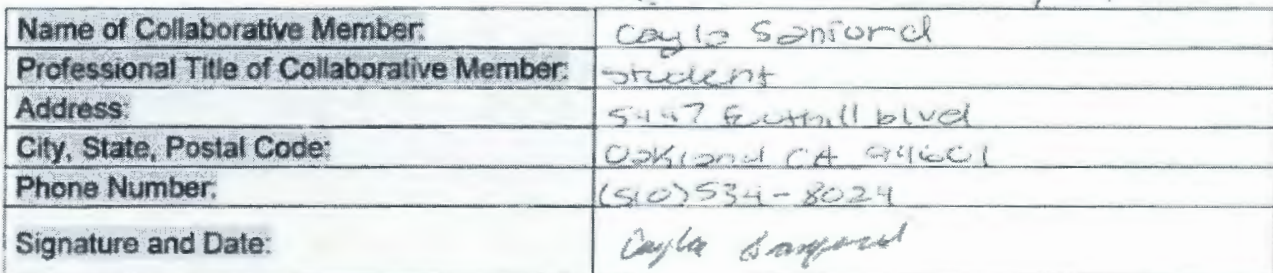 Name of Collaborative Member: Cayla Sanford
Professional Title of Collaborative Member: student
Address: 5447 Foothill blvd
City, State, Postal Code: Oakland CA 94601
Phone Number: (510) 534-8024
Signature and Date: Cayla Sanford